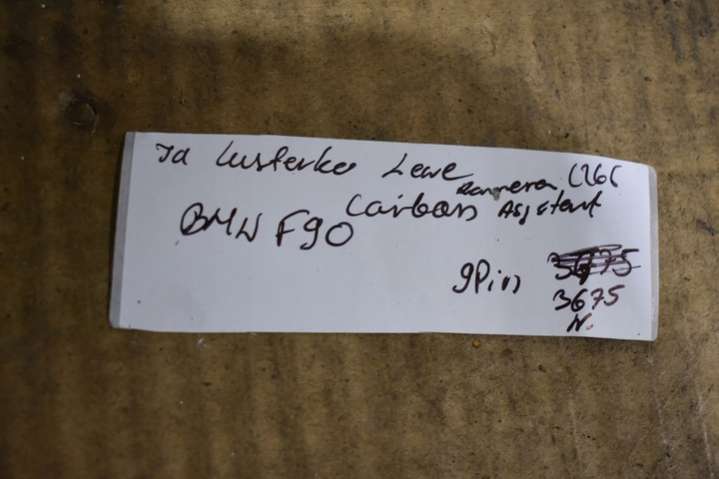 Ja Lusterko Lewe
Kammera
Carbon Asystent
BMW F90
9Pin 3675
3675
N.